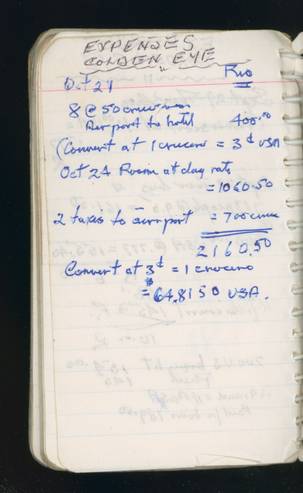 EXPENSES
GOLDEN EYE
Rio
Oct 24
8 @ 50 cruceros
Airport to hotel 400.00
(Convert at 1 crucero = 3¢ USA
Oct 24 Room at day rate
= 1060.50
2 taxis to airport = 700 cruc
2160.50
Convert at 3¢ = 1 crucero
= $64.8150 USA.